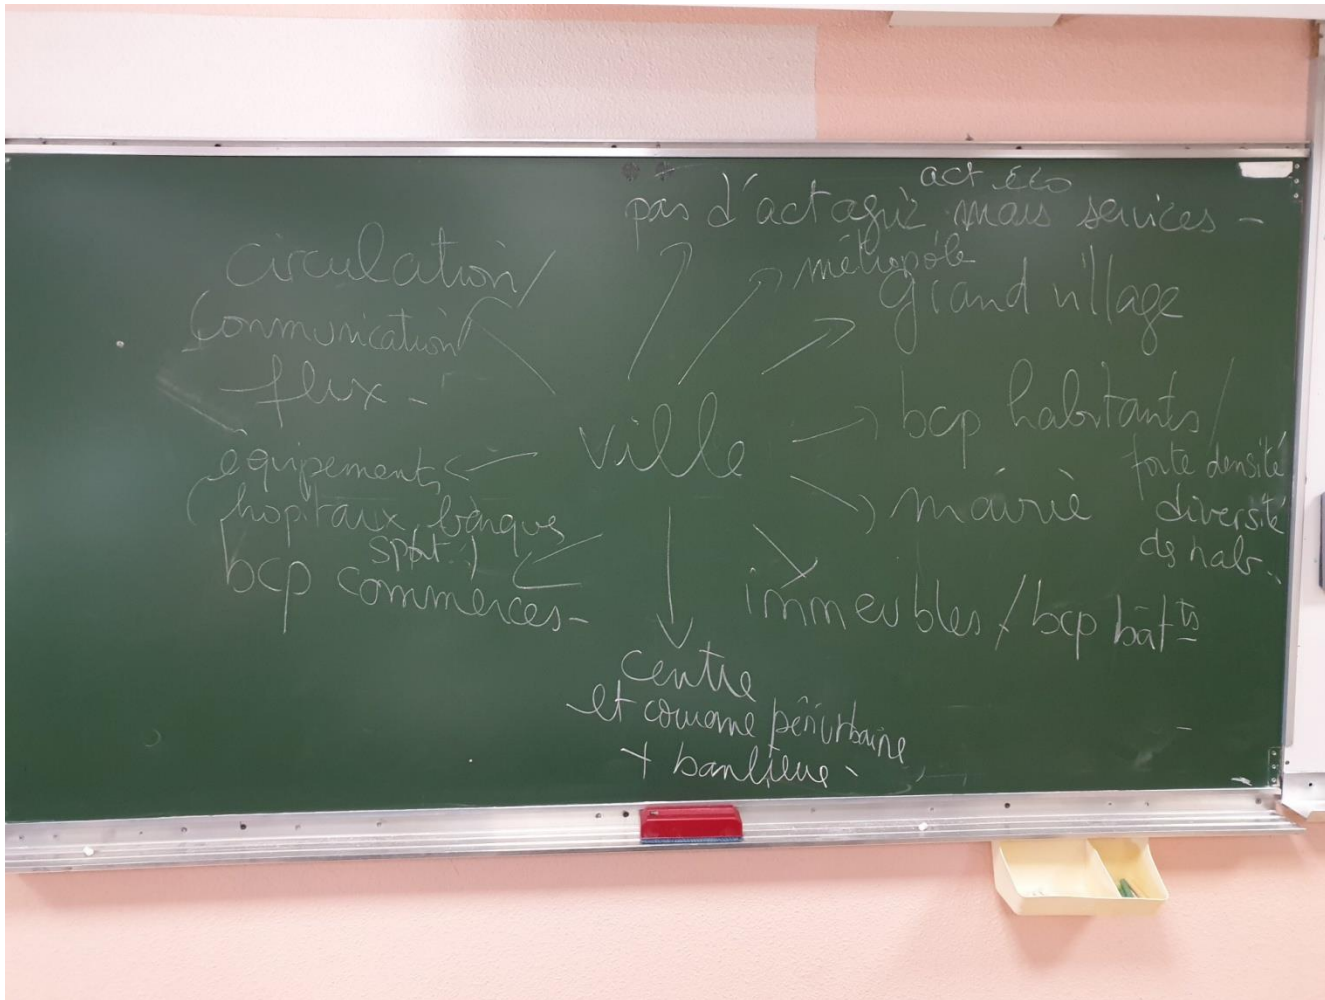 act éco
pas d'act agri mais services -
métropole
grand village
circulation /
communication
flux -
ville
bcp habitants /
forte densité
diversité
ds hab..
équipements
(hopitaux, banques
sport..)
bcp commerces -
mairie
immeubles / bcp bât ts
centre
et couronne périurbaine
+ banlieue -